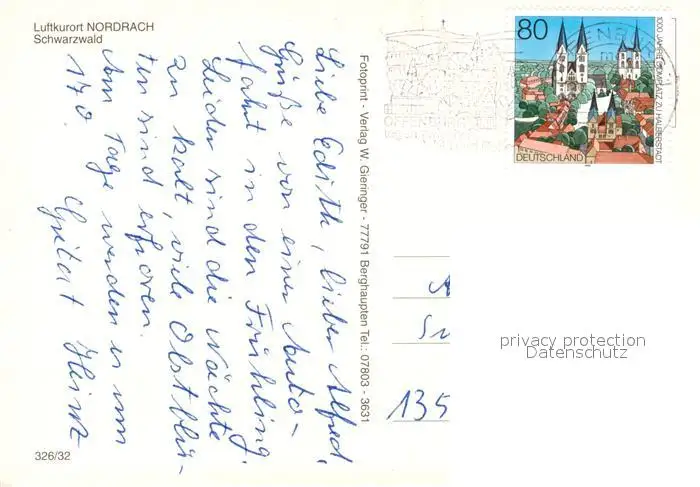 Luftkurort NORDRACH
Schwarzwald
Liebe Edith, lieber Alfred,
Grüße von einer Auto-
fahrt in den Frühling.
Leider sind die Nächte
zu kalt, viele Obstblü-
ten sind erfroren.
Am Tage werden es um
17°.
Heinz
326/32
Fotoprint - Verlag W. Gieringer - 77791 Berghaupten Tel.: 07803 - 3631
80
1000 JAHRE DOMPLATZ ZU HALBERSTADT
DEUTSCHLAND
OFFENBURG
135
privacy protection
Datenschutz